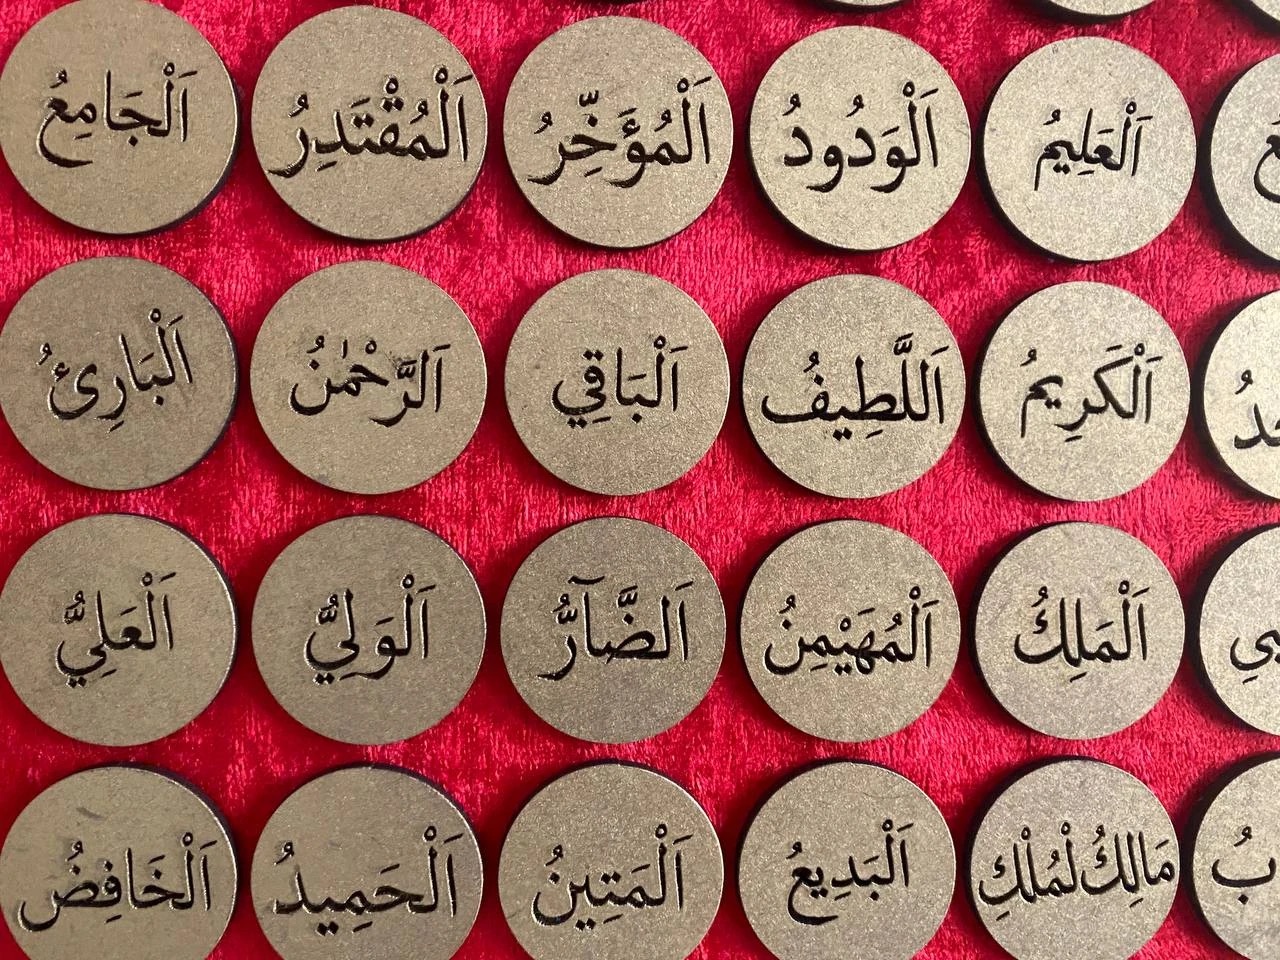 اَلْعَلِيمُ اَلْوَدُودُ اَلْمُؤَخِّرُ اَلْمُقْتَدِرُ اَلْجَامِعُ
اَلْكَرِيمُ اَللَّطِيفُ اَلْبَاقِي اَلرَّحْمٰنُ اَلْبَارِئُ
اَلْمَلِكُ اَلْمُهَيْمِنُ اَلضَّآرُّ اَلْوَلِيُّ اَلْعَلِيُّ
مَالِكُ لْمُلْكِ اَلْبَدِيعُ اَلْمَتِينُ اَلْحَمِيدُ اَلْخَافِضُ